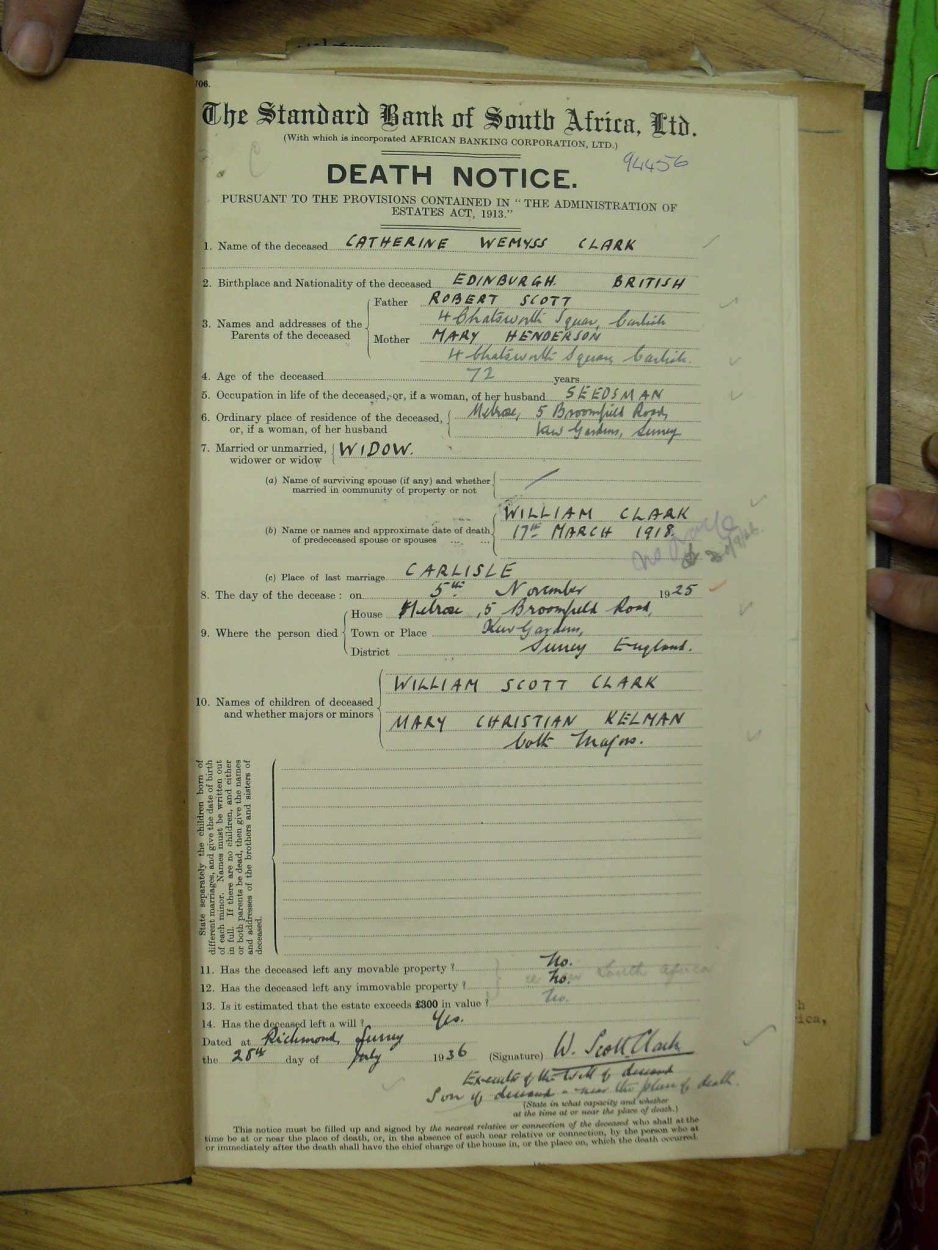 706.
The Standard Bank of South Africa, Ltd.
(With which is incorporated AFRICAN BANKING CORPORATION, LTD.)
94456
DEATH NOTICE.
PURSUANT TO THE PROVISIONS CONTAINED IN "THE ADMINISTRATION OF
ESTATES ACT, 1913."
1. Name of the deceased CATHERINE WEMYSS CLARK
2. Birthplace and Nationality of the deceased EDINBURGH. BRITISH
Father ROBERT SCOTT
4 Chatsworth Square, Carlisle
3. Names and addresses of the
Parents of the deceased
Mother MARY HENDERSON
4 Chatsworth Square, Carlisle.
4. Age of the deceased 72 years
5. Occupation in life of the deceased, or, if a woman, of her husband SEEDSMAN
6. Ordinary place of residence of the deceased, Melrose, 5 Broomfield Road,
or, if a woman, of her husband Kew Gardens, Surrey
7. Married or unmarried, WIDOW.
widower or widow
(a) Name of surviving spouse (if any) and whether
married in community of property or not
WILLIAM CLARK
(b) Name or names and approximate date of death 17th MARCH 1918.
of predeceased spouse or spouses ... ...
(c) Place of last marriage CARLISLE
8. The day of the decease: on 5th November 1925
House Melrose, 5 Broomfield Road,
9. Where the person died Town or Place Kew Gardens,
District Surrey England.
WILLIAM SCOTT CLARK
10. Names of children of deceased
and whether majors or minors
MARY CHRISTIAN KELMAN
both Majors.
State separately the children born of
different marriages, and give the date of birth
of each minor. Names must be written out
in full. If there are no children, and either
or both parents be dead, then give the names
and addresses of the brothers and sisters of
deceased.
11. Has the deceased left any movable property? No.
12. Has the deceased left any immovable property? No. South Africa
13. Is it estimated that the estate exceeds £300 in value? No.
14. Has the deceased left a will? Yes.
Dated at Richmond, Surrey
the 28th day of July 1936 (Signature) W. Scott Clark
Executor of the Will of deceased
Son of deceased - near the place of death.
(State in what capacity and whether
at the time at or near the place of death.)
This notice must be filled up and signed by the nearest relative or connection of the deceased who shall at the
time be at or near the place of death, or, in the absence of such near relative or connection, by the person who at
or immediately after the death shall have the chief charge of the house in, or the place on, which the death occurred.